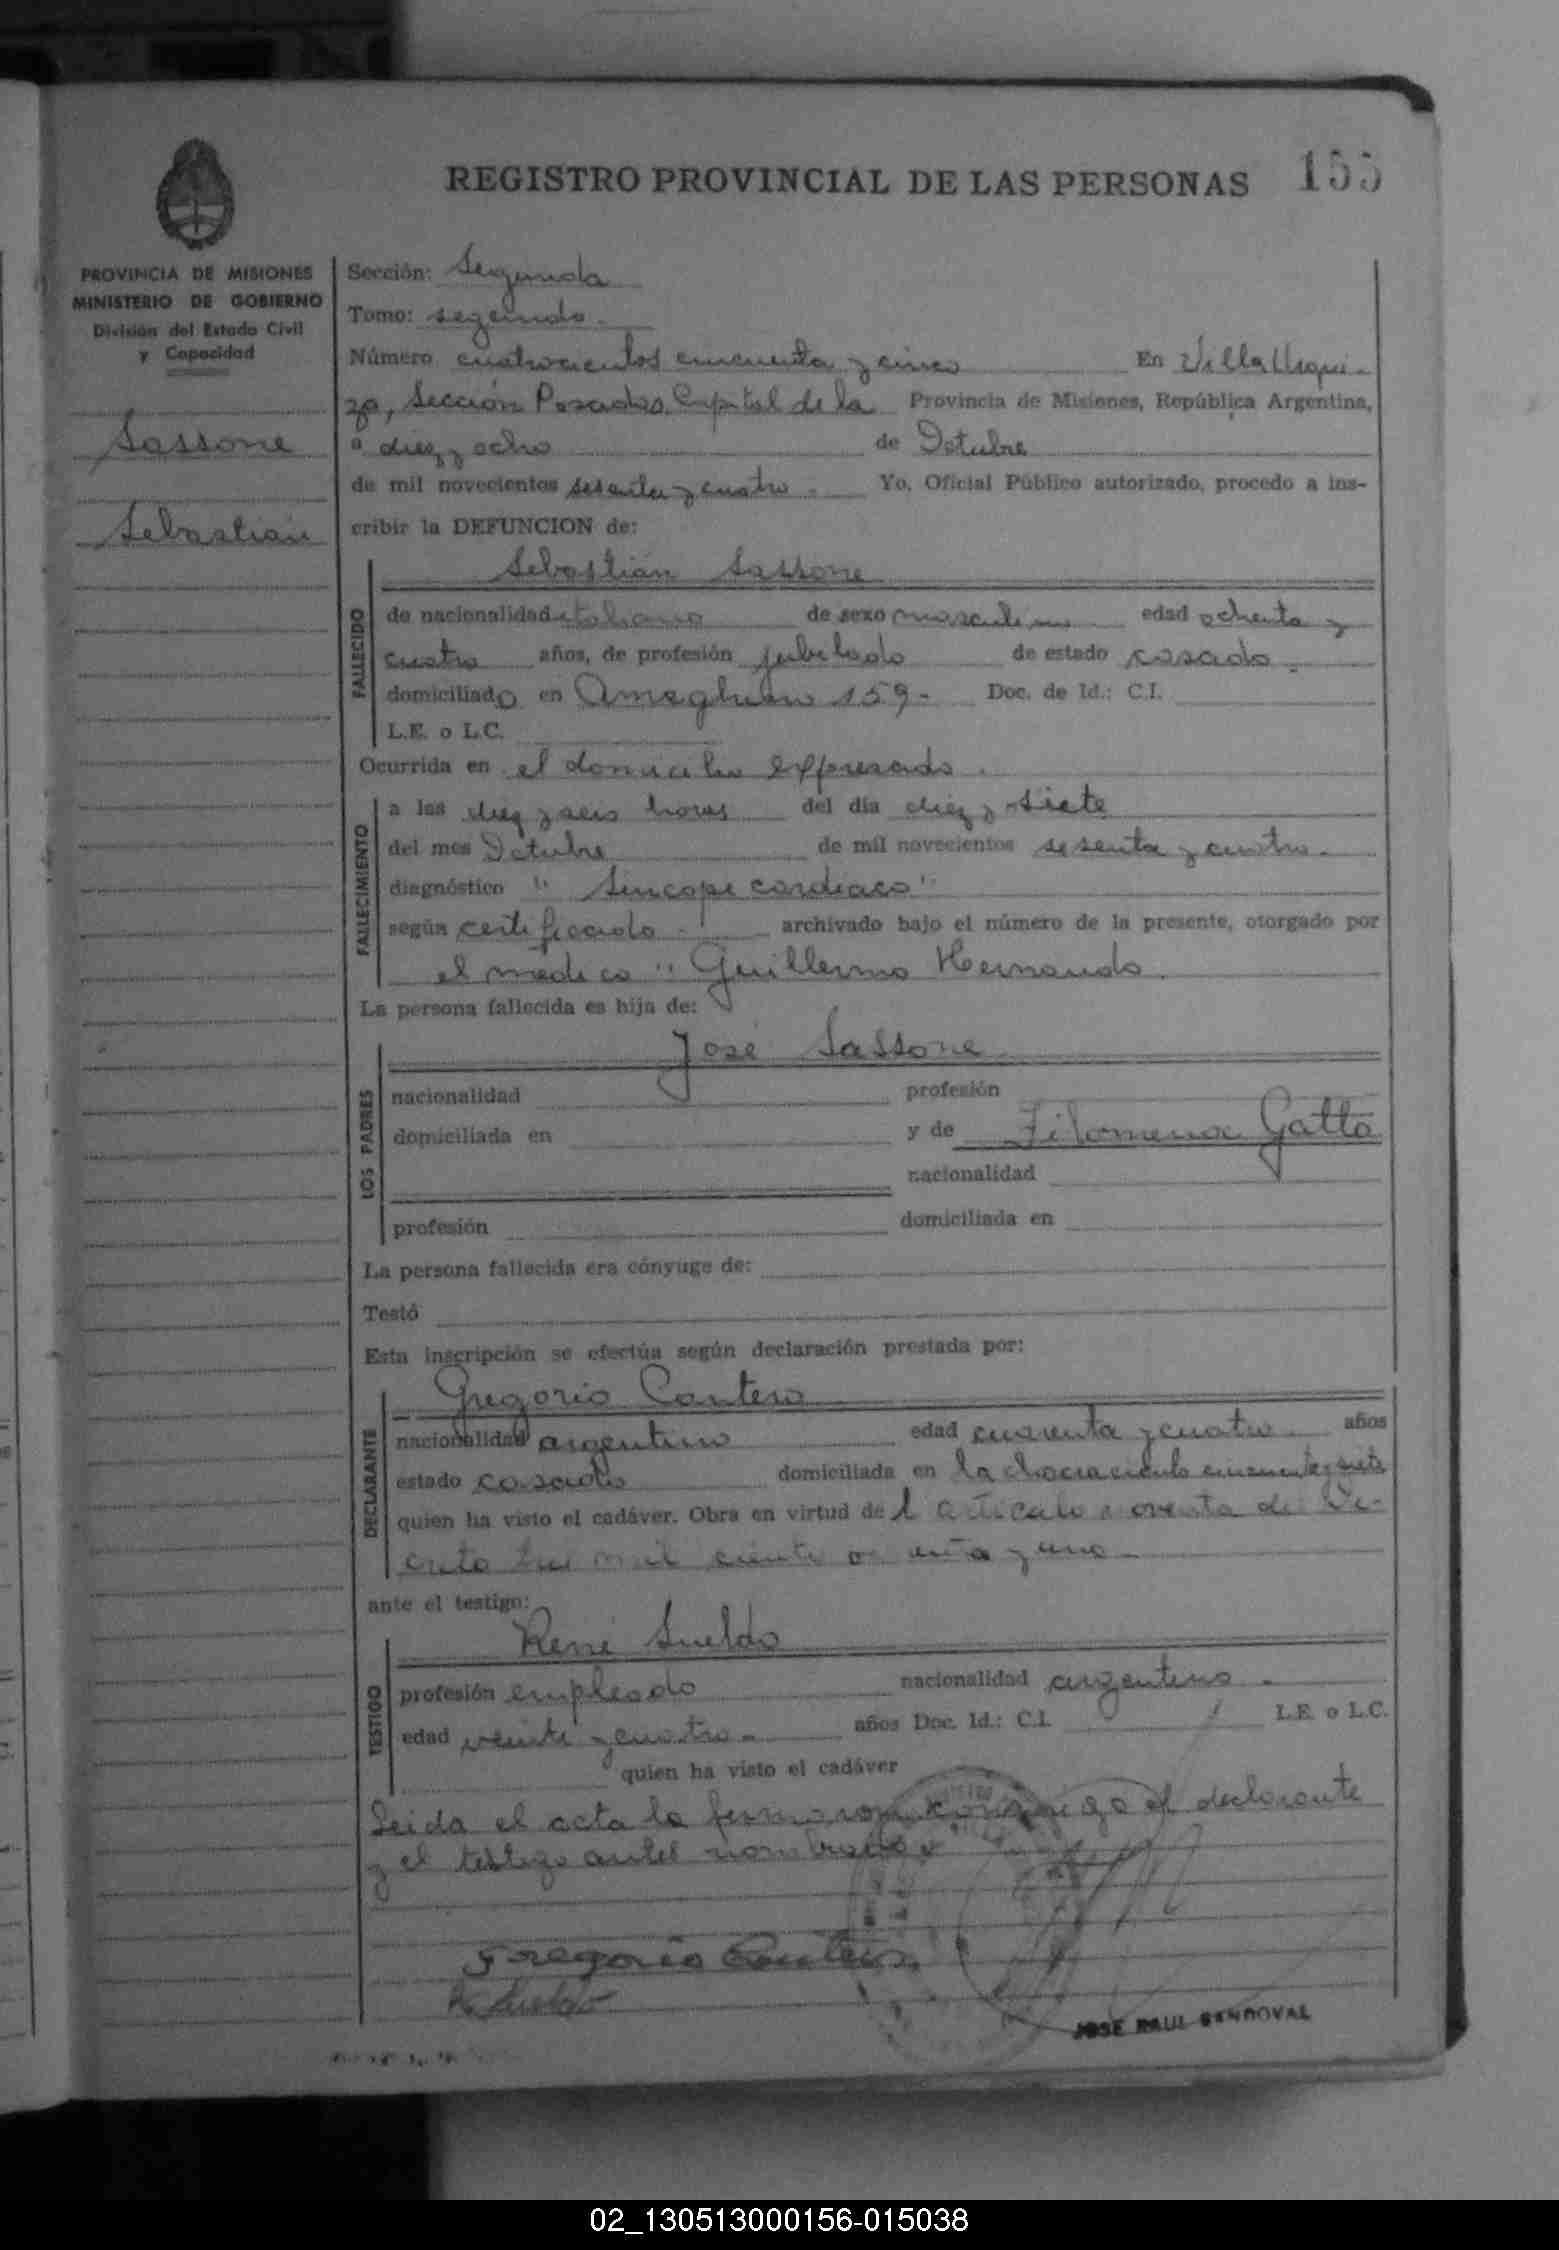 REGISTRO PROVINCIAL DE LAS PERSONAS 155
PROVINCIA DE MISIONES
MINISTERIO DE GOBIERNO
División del Estado Civil
y Capacidad
Sassone
Sebastián
Sección: Segunda
Tomo: segundo.
Número cuatrocientos cincuenta y cinco En Villa Urqui-
za, Sección Posadas, Capital de la Provincia de Misiones, República Argentina,
a diez y ocho de Octubre
de mil novecientos sesenta y cuatro. Yo, Oficial Público autorizado, procedo a ins-
cribir la DEFUNCION de:
Sebastián Sassone
FALLECIDO
de nacionalidad italiano de sexo masculino edad ochenta y
cuatro años, de profesión jubilado de estado casado.
domiciliado en Ameghino 159- Doc. de Id.: C.I.
L.E. o L.C.
Ocurrida en el domicilio expresado.
FALLECIMIENTO
a las diez y seis horas del día diez y siete
del mes Octubre de mil novecientos sesenta y cuatro.
diagnóstico "Sincope cardiaco"
según certificado. archivado bajo el número de la presente, otorgado por
el medico "Guillermo Hernando.
La persona fallecida es hija de:
José Sassone
LOS PADRES
nacionalidad profesión
domiciliada en y de Filomena Gatta
nacionalidad
profesión domiciliada en
La persona fallecida era cónyuge de:
Testó
Esta inscripción se efectúa según declaración prestada por:
Gregorio Cantero
DECLARANTE
nacionalidad argentino edad cuarenta y cuatro. años
estado casado domiciliada en la chacra ciento cincuenta y siete
quien ha visto el cadáver. Obra en virtud del articulo noventa del De-
creto tres mil ciento y uno-
ante el testigo:
René Sueldo
TESTIGO
profesión empleado nacionalidad argentino.
edad veinte y cuatro- años Doc. Id.: C.I. L.E. o L.C.
quien ha visto el cadáver
Leida el acta la firmaron conmigo el declarante
y el testigo antes nombrado
Gregorio Cantero
R. Sueldo
JOSE RAUL SANDOVAL
02_130513000156-015038